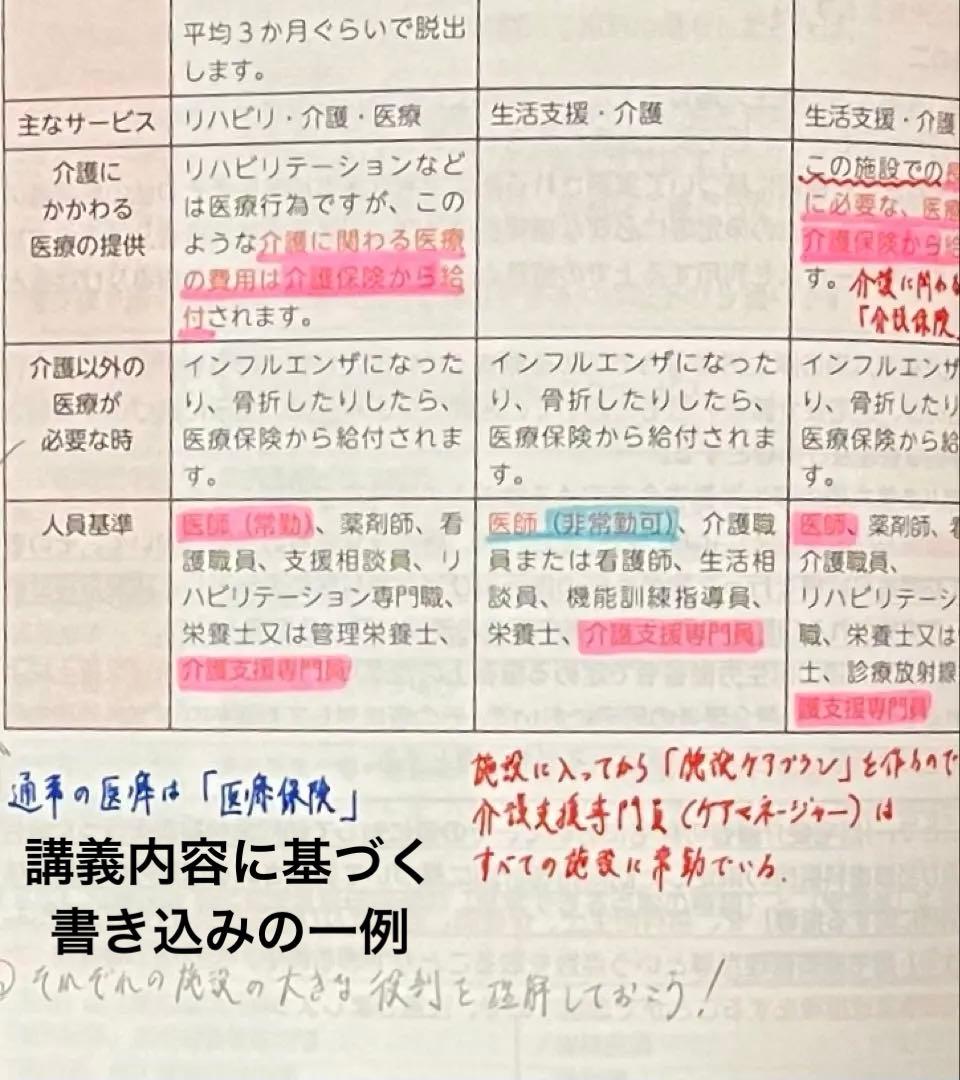 平均３か月ぐらいで脱出
します。
主なサービス
リハビリ・介護・医療
生活支援・介護
生活支援・介護
介護に
かかわる
医療の提供
リハビリテーションなど
は医療行為ですが、この
ような介護に関わる医療
の費用は介護保険から給
付されます。
この施設での
に必要な、医療
介護保険から給
す。介護に関わる
「介護保険」
介護以外の
医療が
必要な時
インフルエンザになった
り、骨折したりしたら、
医療保険から給付されま
す。
インフルエンザになった
り、骨折したりしたら、
医療保険から給付されま
す。
インフルエンザ
り、骨折したり
医療保険から給
す。
人員基準
医師（常勤）、薬剤師、看
護職員、支援相談員、リ
ハビリテーション専門職、
栄養士又は管理栄養士、
介護支援専門員
医師（非常勤可）、介護職
員または看護師、生活相
談員、機能訓練指導員、
栄養士、介護支援専門員
医師、薬剤師、看
介護職員、
リハビリテーシ
職、栄養士又は
士、診療放射線
護支援専門員
通常の医療は「医療保険」
施設に入ってから「施設ケアプラン」を作るので
介護支援専門員（ケアマネージャー）は
すべての施設に常勤でいる．
講義内容に基づく
書き込みの一例
それぞれの施設の大きな役割を理解しておこう！